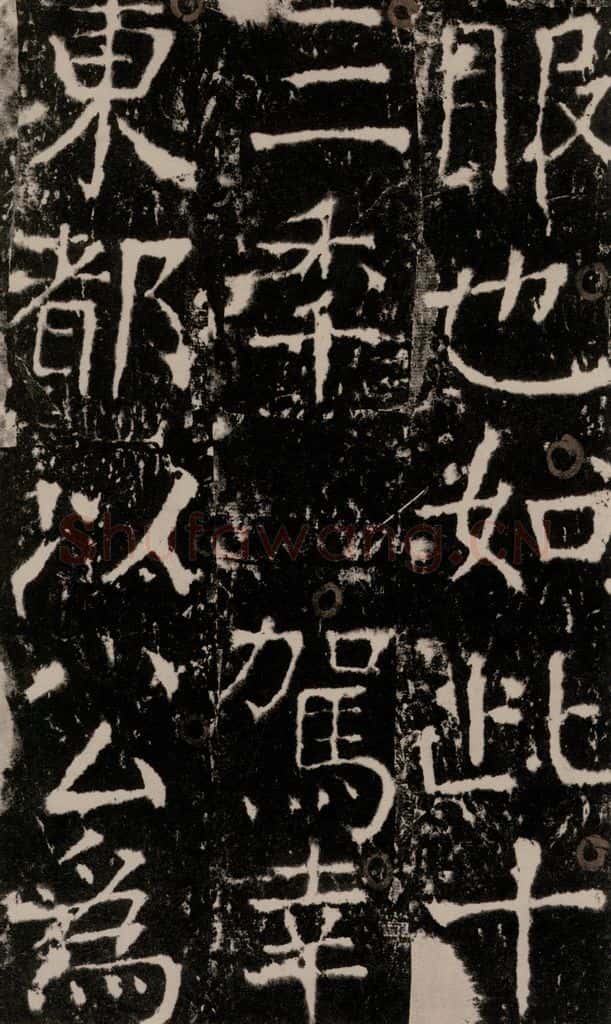 服也如此十
三季駕幸
東都以公為
Shufawang.CN